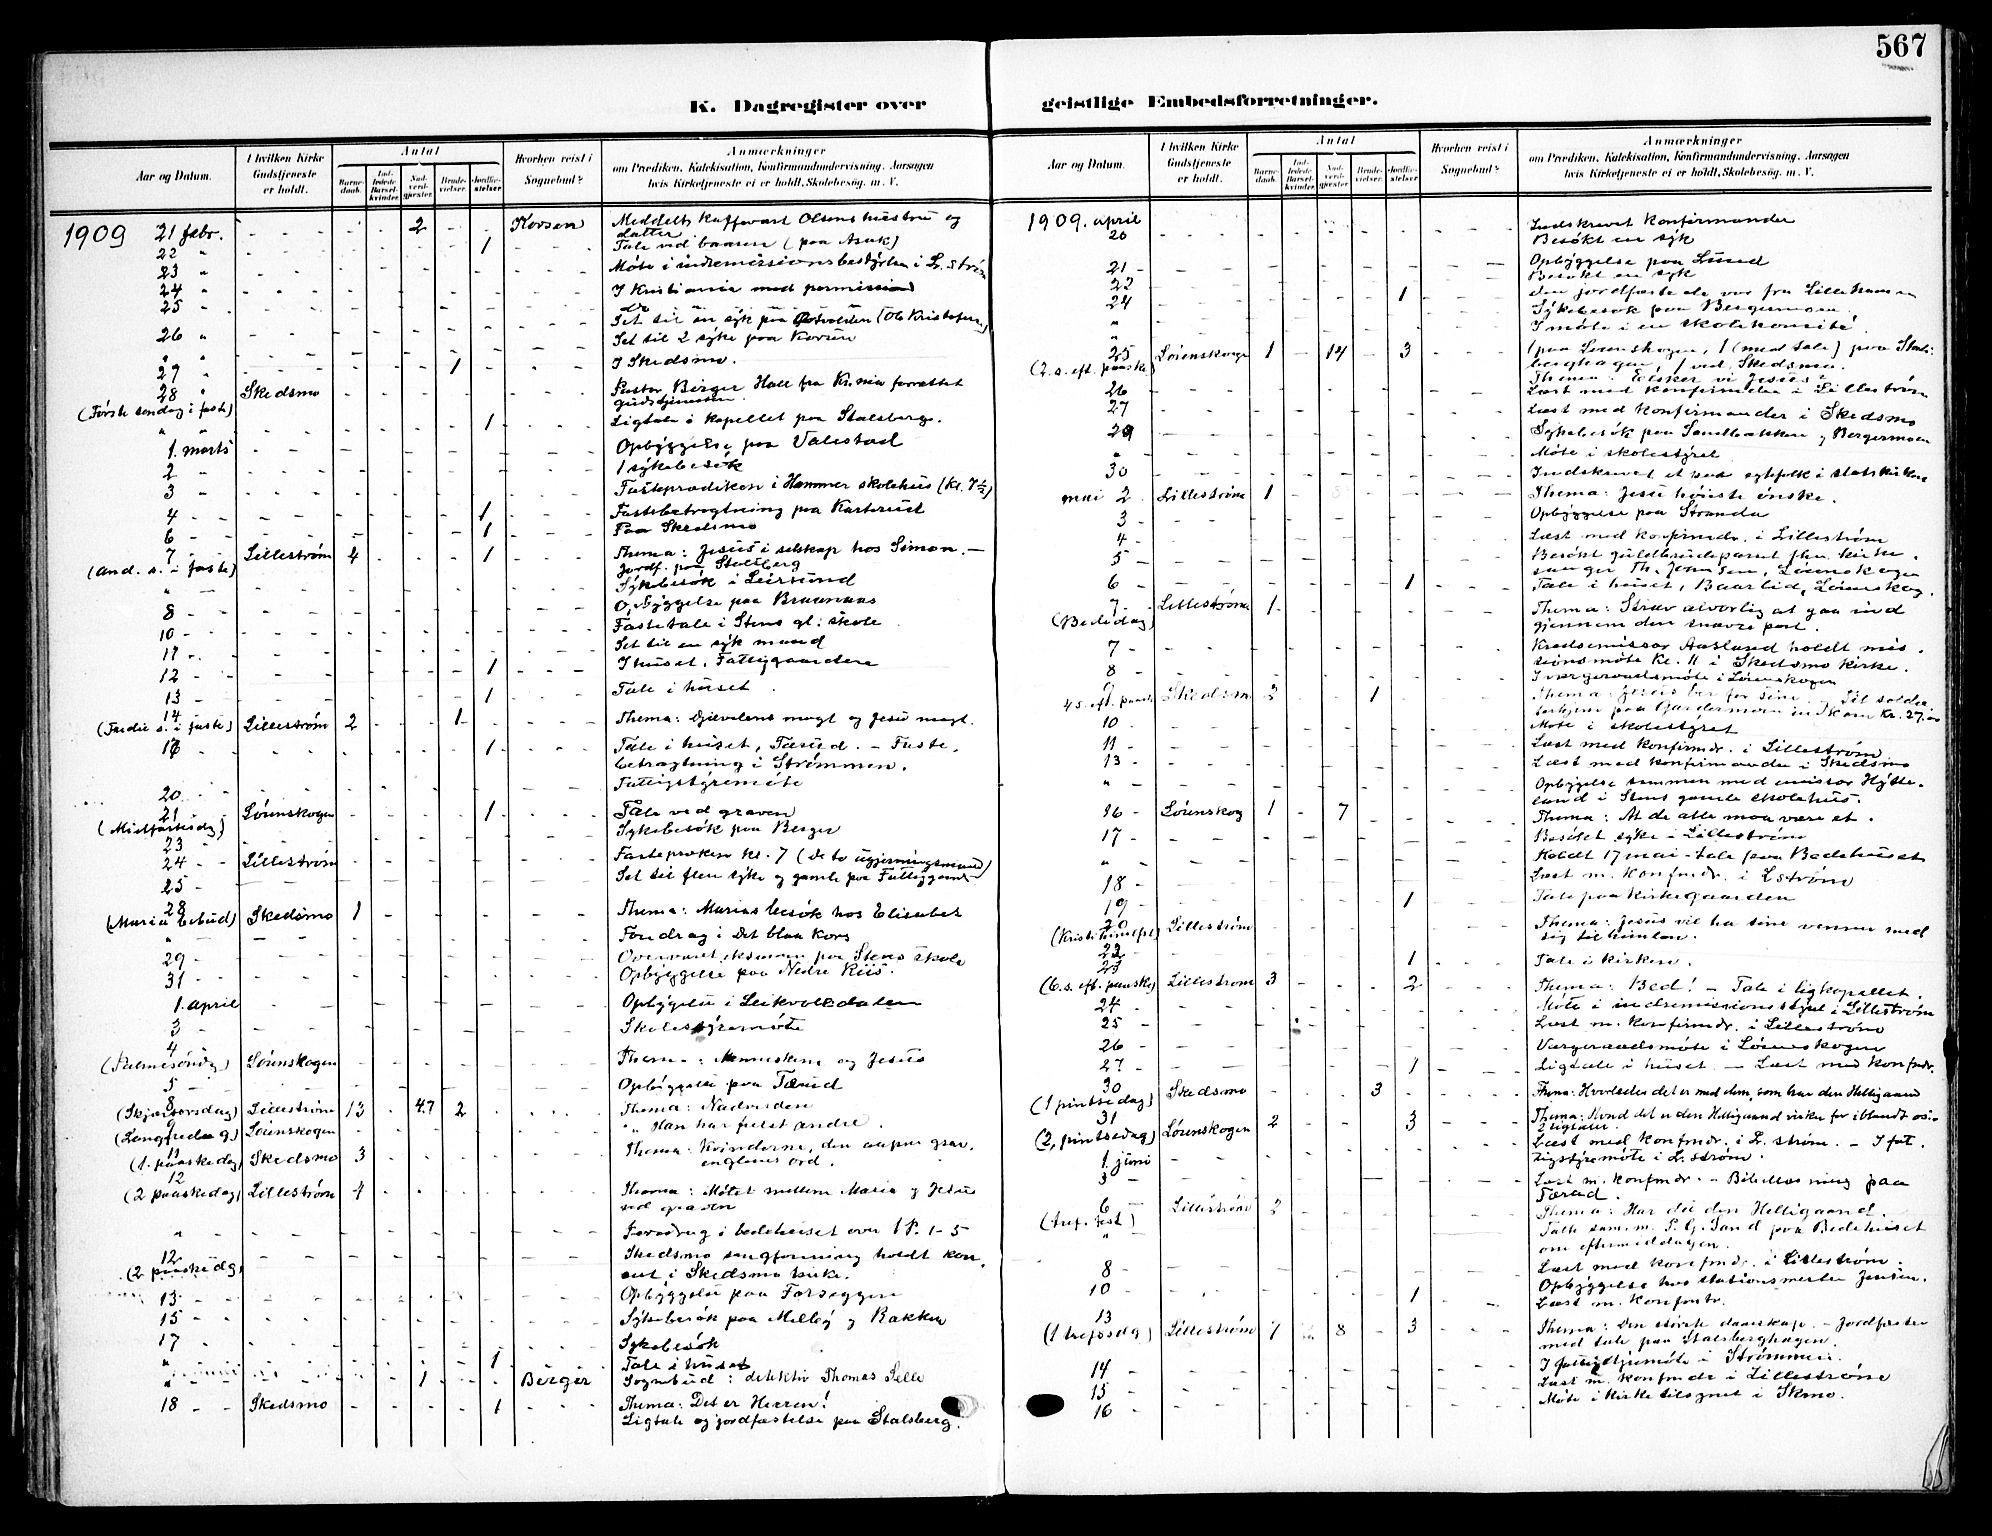 567
K. Dagregister over
Aar og Datum.
I hvilken Kirke Gudstjeneste er holdt.
Antal
Barnedaab.
Indledede Barselkvinder.
Nadverdgjester
Brudevielser.
Jordfæstelser
Hvorhen reist i Sognebud?
Anmærkninger
om Prædiken, Katekisation, Konfirmandundervisning, Aarsagen
hvis Kirketjeneste ei er holdt, Skolebesøg, m. V.
1909 21 febr. 2 Kovsen Meddelt kaffevært Olsens hustru og
datter
22 " 1 Tale ved baaren (paa Asak)
23 " Møte i indremissionsbestyrelsen i L. strøm
24 " I Kristiania med permission
25 " Set til en syk paa (Ole Kristofersen)
26 " Set til 2 syke paa Kovsen
" " 1 I Skedsmo.
28 " Skedsmo Pastor Birger Hall fra Kr.nia forrettet
(Første søndag i faste) gudstjenesten.
" " 1 Ligtale i kapellet paa Stalsberg.
1. marts Opbyggelse paa Valestad
2 " 1 sykebesøk
3 " Fasteprædiken i Hammer skolehus (Kl. 7½)
4 - 1 Fastebetragtning paa Karterud
6 - 1 Paa Skedsmo
7 Lillestrøm 4 1 Thema: Jesus i selskap hos Simon. -
(And. s. i faste) Jordf. paa Stalsberg
" Sykebesøk i Leirsund
8 - Opbyggelse paa Braanaas
10 - Fastetale i Stens gl. skole
11 - Set til en syk mand
12 - 1 I huset, Fattiggaarden
13 - 1 Tale i huset
14 Lillestrøm 2 1 Thema: Djævelens magt og Jesu magt.
(Tredie s. i faste)
1 Tale i huset, Tærud. - Faste-
betragtning i Strømmen.
20 - Fattigstyremøte
21 Lørenskogen 1 Tale ved graven
(Midfastesdg)
23 - Sykebesøk paa Berger
24 - - Lillestrøm Fasteprøken kl. 7 (De to ugjerningsmænd)
25 - Set til flere syke og gamle paa Fattiggaard-
28 Skedsmo 1 Thema: Marias besøk hos Elisabet
(Maria bebud)
" Foredrag i Det blaa kors
29 - Overværet eksamen paa Stens skole
31 - Opbyggelse paa Nedre Riis
1. april Opbyggelse i Leikvoldalen
3 - Skolestyremøte
4 Lørenskogen Thema: Menneskene og Jesus
(Palmesøndg)
5 - Opbyggelse paa Tærud
8 Lillestrøm 13 47 2 Thema: Nadverden
(Skjærtorsdag)
9 Lørenskogen "" Han har frelst andre.
(Langfredag)
11 Skedsmo 3 Thema: Kvinderne, den aapne grav,
(1. paaskedag) englens ord.
12 Lillestrøm 4 Thema: Møtet mellem Maria og Jesus
(2 paaskedag) ved graven
" Foredrag i bedehuset over 1 P. 1-5
12 Skedsmo sangforening holdt kon-
(2 paaskedg) sert i Skedsmo kirke.
13 - Opbyggelse paa Farseggen
15 - Sykebesøk paa Melby og Bakken
17 - Sykebesøk
" 1 Tale i huset
" 1 Berger Sognebud: detektiv Thomas Selle
18 - - Skedsmo 1 Thema: Det er Herren!
Ligtale og jordfæstelse paa Stalsberg.
geistlige Embedsforretninger.
Aar og Datum.
I hvilken Kirke Gudstjeneste er holdt.
Antal
Barnedaab.
Indledede Barselkvinder.
Nadverdgjester
Brudevielser.
Jordfæstelser
Hvorhen reist i Sognebud?
Anmærkninger
om Prædiken, Katekisation, Konfirmandundervisning, Aarsagen
hvis Kirketjeneste ei er holdt, Skolebesøg, m. V.
1909. april Indskrevet konfirmander
20 Besøkt en syk
21 - Opbyggelse paa Lund
22 Besøkt en syk
24 1 den jordfæstede var fra Lillehammer
" Sykebesøk paa Bergermoen.
I møte i en skolekomité.
25 Lørenskogen 1 14 3 1 paa Lørenskogen, 1 (med tale) paa Stals-
(2. s. eft. paaske) berghagen, 1 ved Skedsmo.
Thema: Elsker vi Jesus?
26 Læst med konfirmander i Lillestrøm
27 Læst med konfirmander i Skedsmo
29 Sykebesøk paa Sandbakken og Bergermoen
" Møte i skolestyret
30 Indskrevet et
mai 2 Lillestrøm 1 Thema: Jesu høieste ønske.
3 - Opbyggelse paa Stranda
4 - Læst med konfirmdr. i Lillestrøm
5 - Besøkt guldbrudeparet fhv. kirke-
sanger Th. Jensen, Lørenskogen
6 - 1 Tale i huset, Baarlid, Lørenskog.
7 - Lillestrøm 1 Thema: Stræv alvorlig at gaa ind
(Bededag) gjennem den snævre port.
7 - Kredsemissær Aasland holdt mis-
sionsmøte kl. 11 i Skedsmo kirke.
8 - I vergeraadsmøte i Lørenskogen
4 s. eft. paaske Skedsmo 2 1 Thema: Jesus ber for sine. Til solda-
terhjem paa Gardermoen indkom kr. 27.00
10 - Møte i skolestyret
11 - Læst med konfirmdr. i Lillestrøm
13 - Læst med konfirmander i Skedsmo
" Opbyggelse sammen med emissær Hytte-
land i Stens gamle skolehus.
16 - Lørenskog 1 7 Thema: At de alle maa være et.
17 - Besøkt syke i Lillestrøm
" Holdt 17 mai-tale paa Bedehuset
18 - Læst m. konfmdr. i L strøm
19 - 1 Tale paa kirkegaarden
20 Lillestrøm Thema: Jesus vil ha sine venner med
(Kristi himmelf) sig til himlen.
22 1 Tale i kirken.
23 Lillestrøm 3 2 Thema: Bed! - Tale i ligkapellet.
(6. s. eft. paaske)
24 - Møte i indremissionsstyret i Lillestrøm
25 - Læst m. konfirmdr. i Lillestrøm
26 - Vergeraadsmøte i Lørenskogen
27 - 1 Ligtale i huset - Læst med konfmdr.
30 Skedsmo 3 Thema: Hvorledes det er med dem, som har den Helligaand
(1 pintsedag)
31 Lørenskogen 2 3 Thema: Hvad det er den Helligaand virker for iblandt os.
(2. pintsedag) 2 ligtaler.
1. juni Læst med konfmdr. i L. strøm. - I fat-
tigstyremøte i L. strøm.
3 - Læst m. konfmdr. - Bibellæsning paa
Tærud.
6 Lillestrøm 2 Thema: Har du den Helligaand.
(Tref. fest) Talte sam. m. P. G. Sand paa Bedehuset
" om eftermiddagen.
8 - Læst med konfmdr. i Lillestrøm.
10 - 1 Opbyggelse hos stationsmester Jensen.
Læst m. konfmdr.
13 Lillestrøm 7 8 3 Thema: Den største daarskap. - Jordfæstet
med tale paa Stalsberghagen.
14 - I fattigstyremøte i Strømmen.
15 - Læst m. konfmdr i Lillestrøm
16 - Møte i kirketilsynet i Skmo.